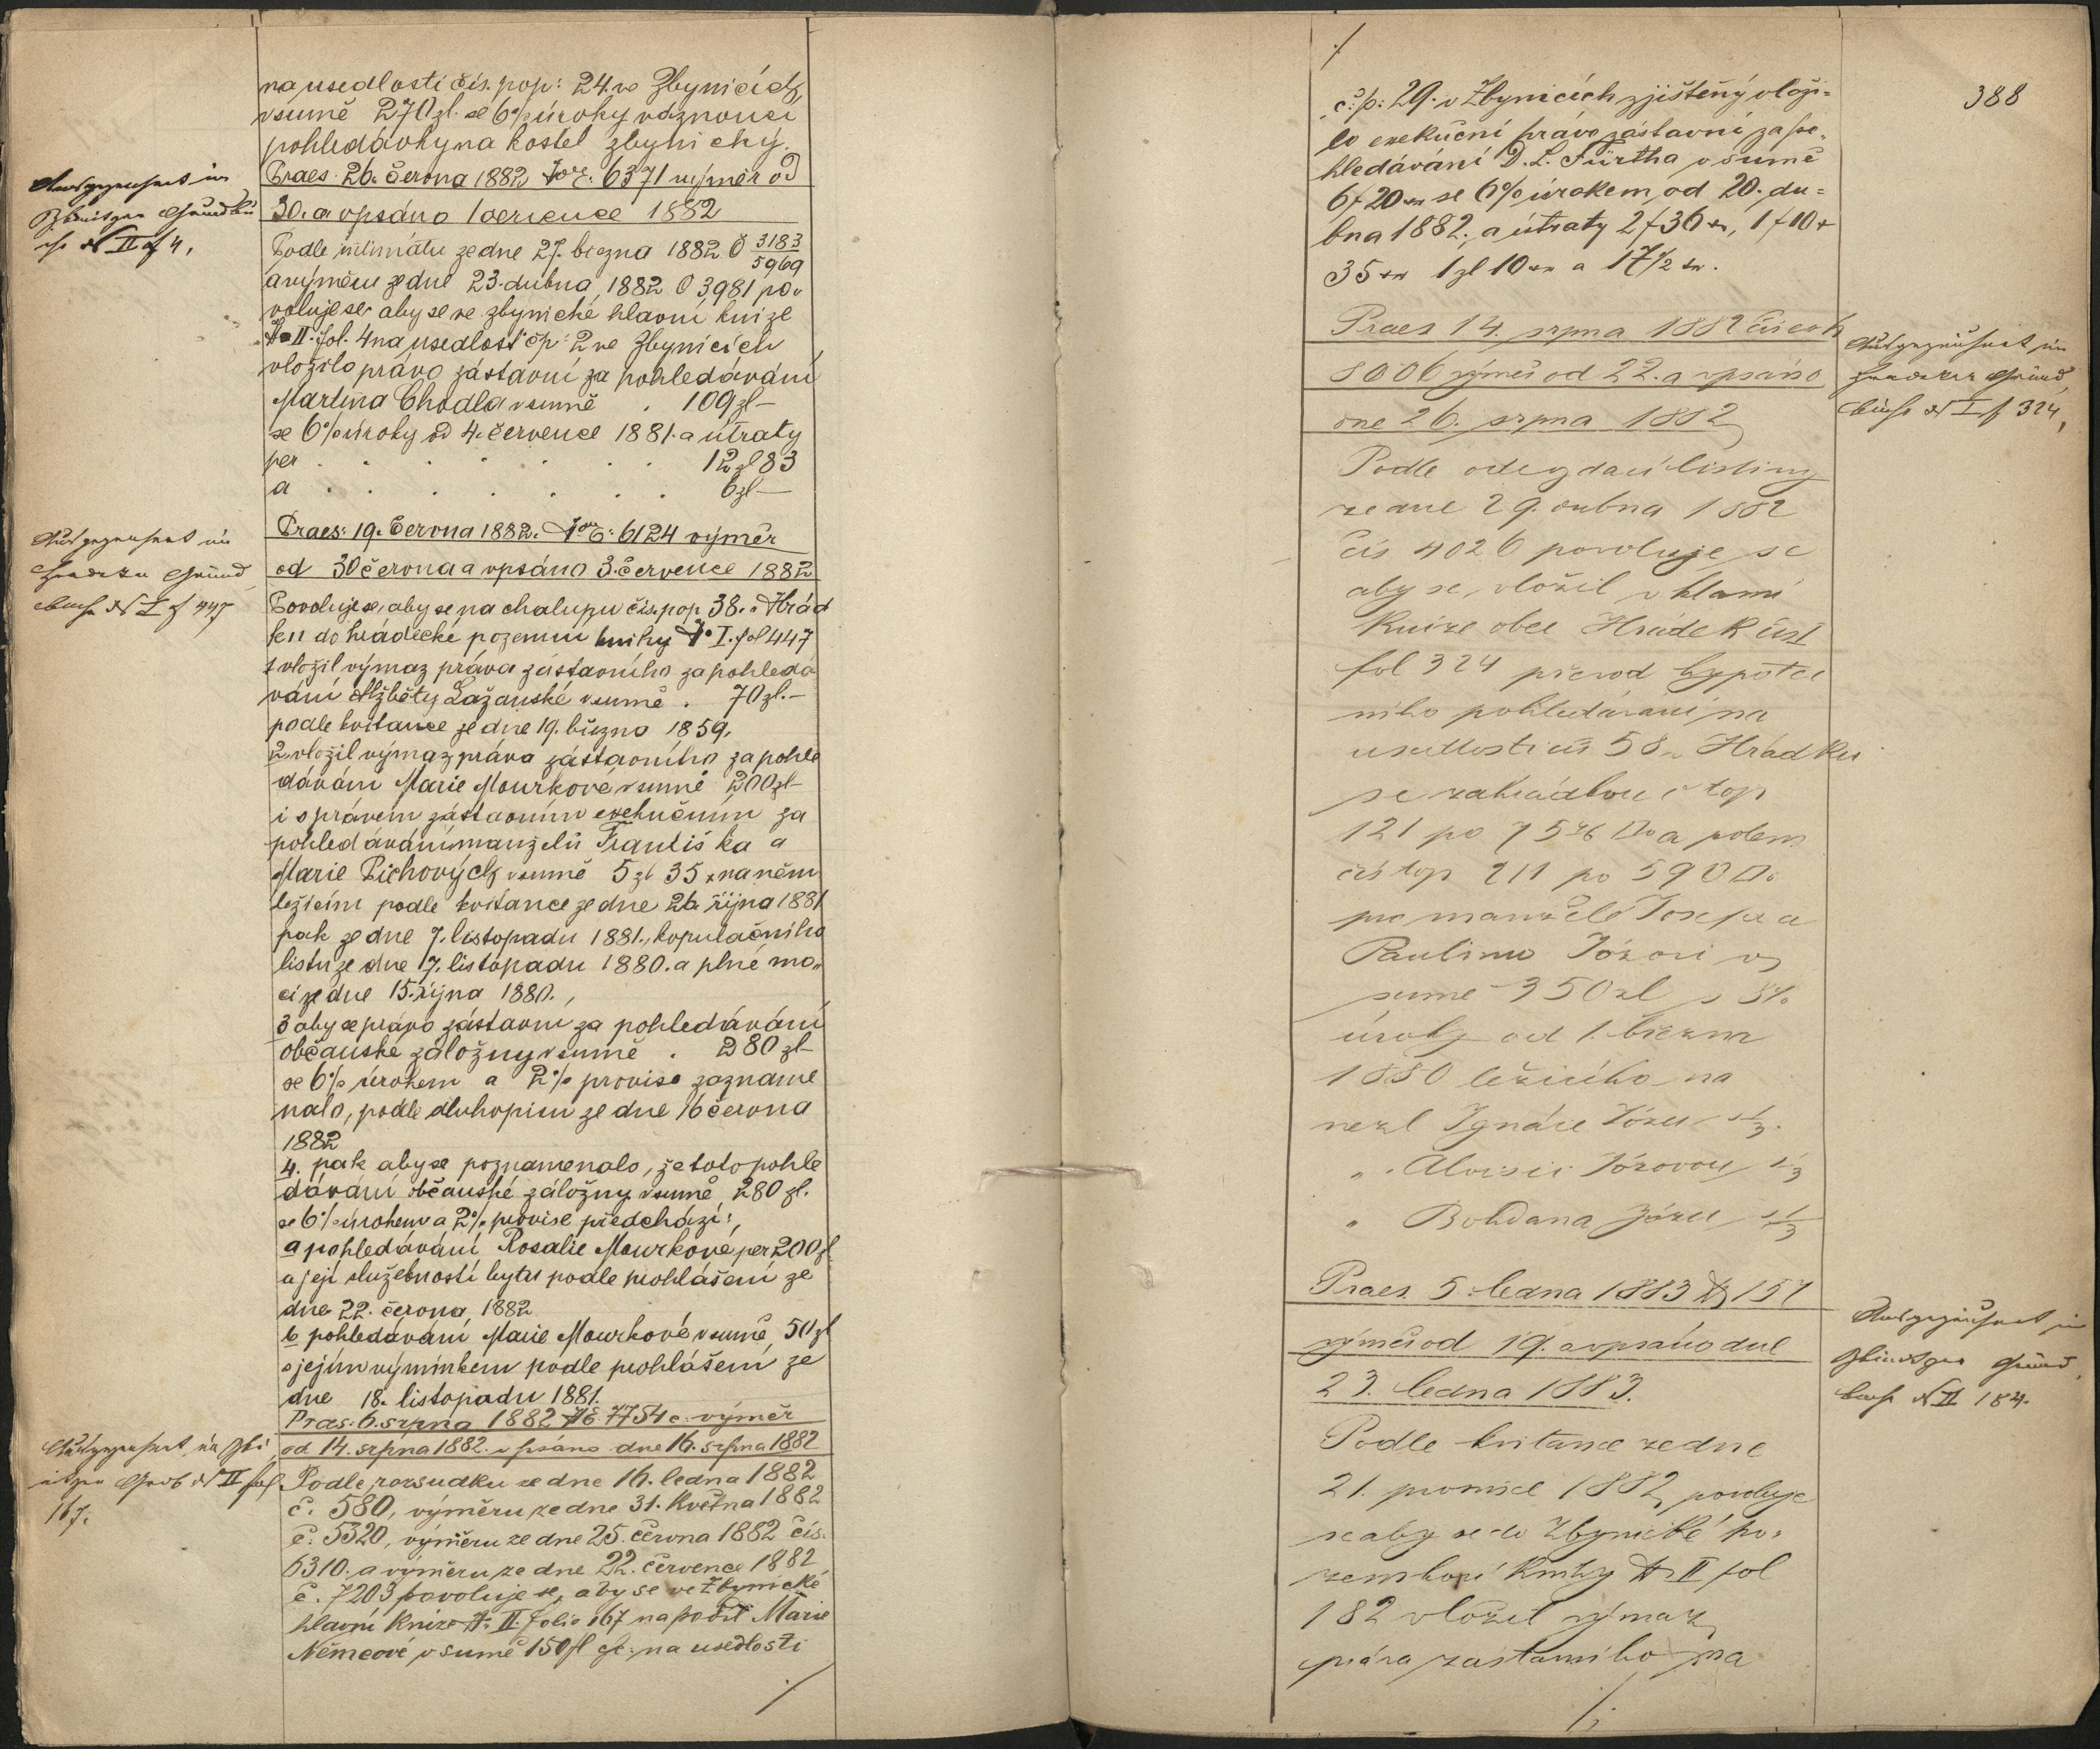 na usedlosti čís. pop: 24. ve Zbynicích
v sumě 270 zl. se 6% úroky váznoucí
pohledávky na kostel zbynický.
Praes: 26. června 1882 No E: 6371 výměr od
30. a vpsáno 1 července 1882
Ausgezeichnet im
Grundbu
ch N II f 4.
Podle intimátu ze dne 27. března 1882 Č 3183
5969
a výměru ze dne 23. dubna 1882 Č 3981 po„
voluje se aby se ve zbynické hlavní knize
N II. fol. 4 na usedlost čp: 2 ve Zbynicích
vložilo právo zástavní za pohledávání
Martina Chodla v sumě . 109 zl –
se 6% úroky od 4. července 1881. a útraty
per . . . . . . . 12 zl 83
a . . . . . . . 6 zl –
Praes: 19. června 1882. No E: 6124 výměr
od 30 června a vpsáno 3. července 1882
Ausgezeichnet im
Hradeker Grund
buch N I f 447
Povoluje se, aby se na chalupu čís. pop 38. v Hrád
ku do hrádecké pozemní knihy N I. fol 447
1 vložil výmaz práva zástavního za pohledá
vání Alžběty Lažanské v sumě . 70 zl. –
podle kvitance ze dne 19. března 1859.
2. vložil výmaz práva zástavního za pohle
dávání Marie Mourkové v sumě 200 zl –
i s právem zástavním exekučním za
pohledávání manželů Františka a
Marie Pichových v sumě 5 zl 35 x na něm
ležícím podle kvitance ze dne 26. října 1881
pak ze dne 7. listopadu 1881., kopulačního
listu ze dne 17. listopadu 1880. a plné mo„
ci ze dne 15. října 1880.,
3 aby se právo zástavní za pohledávání
občanské záložny v sumě . 280 zl –
se 6% úrokem a 2% provise zazname
nalo, podle dluhopisu ze dne 16 června
1882
4. pak aby se poznamenalo, že toto pohle
dávání občanské záložny v sumě 280 zl.
se 6% úrokem a 2% provise předchází:,
a pohledávání Rosalie Mourkové per 200 zl
a její služebností bytu podle prohlášení ze
dne 22. června 1882
b pohledávání Marie Mourkové v sumě 50 zl
s jejím výminkem podle prohlášení ze
dne 18. listopadu 1881.
Praes: 6. srpna 1882 NE 7754 c. výměr
od 14. srpna 1882. vpsáno dne 16. srpna 1882
Ausgezeichnet im Zbi
Grdb N II fol
167.
Podle rozsudku ze dne 16. ledna 1882
č. 580, výměru ze dne 31. května 1882
č. 5320, výměru ze dne 25. června 1882 čís.
6310. a výměru ze dne 22. července 1882
č. 7203 povoluje se, aby se ve Zbynické
hlavní knize N: II. folio 167 na podíl Marie
Němcové v sumě 150 fl na usedlosti
./.
./.
388
č: p: 29. v Zbynicích zjištěný vloži=
lo exekuční právo zástavní za po„
hledávání D. L. Fürtha v sumě
6 f 20 xr se 6% úrokem od 20. du=
bna 1882., a útraty 2 f 36 xr, 1 f 10 x
35 xr 1 zl 10 xr a 17 1/2 xr.
Praes 14. srpna 1882 čís exh
8006 výměr od 22. a vpsáno
dne 26. srpna 1882
Ausgezeichnet im
Hradeker Grund
buch N I f 324,
Podle odevzdací listiny
ze dne 29. dubna 1882
čís 4026 povoluje se
aby se vložil v hlavní
knize obce Hrádek čís I
fol 324 převod hypoteč
ního pohledávání na
usedlosti čís 58 v Hrádku
se zahrádkou č top
121 po 75 □o a polem
čís top 211 po 590 □o
pro manžele Josefa a
Paulinu Józovi v
sumě 350 zl s 5%
úroky od 1. března
1880 ležícího na
nezl Ignáce Józu s 1/3.
„ Aloisii Józovou 1/3
„ Bohdana Józu s 1/3
Praes. 5. ledna 1883 N 157
výměr od 19. a vpsáno dne
23. ledna 1883.
Ausgezeichnet im
Grund
buch N II 184.
Podle kvitance ze dne
21. prosince 1882 povoluje
se aby se do Zbynické po„
zemkové knihy N II fol
182 vložil výmaz
práva zástavního na
./.